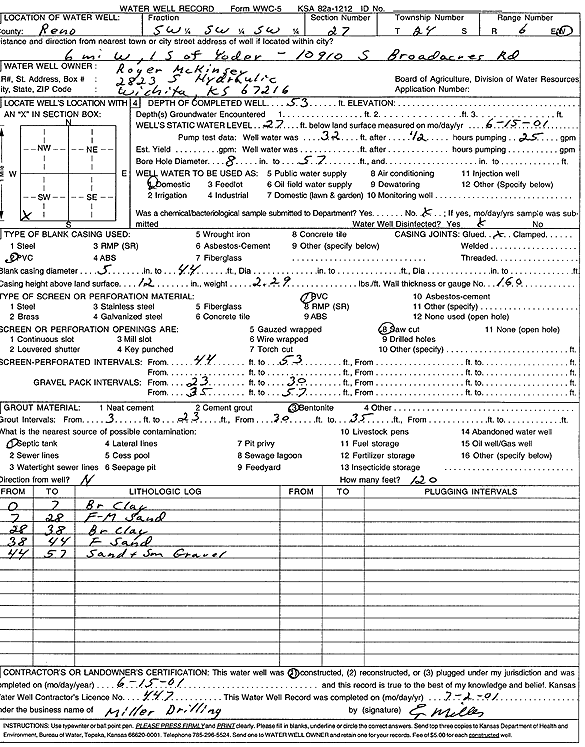 WATER WELL RECORD Form WWC-5 KSA 82a-1212 ID No.
LOCATION OF WATER WELL: Fraction Section Number Township Number Range Number
County: Reno SW ¼ SW ¼ SW ¼ 27 T 24 S R 6 E/W
Distance and direction from nearest town or city street address of well if located within city?
6 mi W, 1 S of Yoder - 10910 S Broadacres Rd
WATER WELL OWNER: Royer McKinsey
R#, St. Address, Box # : 2823 S Hydraulic Board of Agriculture, Division of Water Resources
City, State, ZIP Code : Wichita, KS 67216 Application Number:
LOCATE WELL'S LOCATION WITH AN "X" IN SECTION BOX:
N
NW NE
W E
SW SE
X
S
1 Mile
4 DEPTH OF COMPLETED WELL 53 ft. ELEVATION:
Depth(s) Groundwater Encountered 1 ft. 2. ft. 3. ft.
WELL'S STATIC WATER LEVEL 27 ft. below land surface measured on mo/day/yr 6-15-01
Pump test data: Well water was 32 ft. after 1/2 hours pumping 25 gpm
Est. Yield gpm: Well water was ft. after hours pumping gpm
Bore Hole Diameter 8 in. to 57 ft., and in. to ft.
WELL WATER TO BE USED AS: 5 Public water supply 8 Air conditioning 11 Injection well
1 Domestic 3 Feedlot 6 Oil field water supply 9 Dewatering 12 Other (Specify below)
2 Irrigation 4 Industrial 7 Domestic (lawn & garden) 10 Monitoring well
Was a chemical/bacteriological sample submitted to Department? Yes No X ; If yes, mo/day/yrs sample was submitted
Water Well Disinfected? Yes X No
TYPE OF BLANK CASING USED: 5 Wrought iron 8 Concrete tile CASING JOINTS: Glued X Clamped
1 Steel 3 RMP (SR) 6 Asbestos-Cement 9 Other (specify below) Welded
2 PVC 4 ABS 7 Fiberglass Threaded
Blank casing diameter 5 in. to 44 ft., Dia in. to ft., Dia in. to ft.
Casing height above land surface 12 in., weight 2.29 lbs./ft. Wall thickness or gauge No. 160
TYPE OF SCREEN OR PERFORATION MATERIAL: 7 PVC 10 Asbestos-cement
1 Steel 3 Stainless steel 5 Fiberglass 8 RMP (SR) 11 Other (specify)
2 Brass 4 Galvanized steel 6 Concrete tile 9 ABS 12 None used (open hole)
SCREEN OR PERFORATION OPENINGS ARE: 5 Gauzed wrapped 8 Saw cut 11 None (open hole)
1 Continuous slot 3 Mill slot 6 Wire wrapped 9 Drilled holes
2 Louvered shutter 4 Key punched 7 Torch cut 10 Other (specify)
SCREEN-PERFORATED INTERVALS: From 44 ft. to 53 ft., From ft. to ft.
From ft. to ft., From ft. to ft.
GRAVEL PACK INTERVALS: From 23 ft. to 30 ft., From ft. to ft.
From 35 ft. to 57 ft., From ft. to ft.
GROUT MATERIAL: 1 Neat cement 2 Cement grout 3 Bentonite 4 Other
Grout Intervals: From 3 ft. to 23 ft., From 30 ft. to 35 ft., From ft. to ft.
What is the nearest source of possible contamination: 10 Livestock pens 14 Abandoned water well
1 Septic tank 4 Lateral lines 7 Pit privy 11 Fuel storage 15 Oil well/Gas well
2 Sewer lines 5 Cess pool 8 Sewage lagoon 12 Fertilizer storage 16 Other (specify below)
3 Watertight sewer lines 6 Seepage pit 9 Feedyard 13 Insecticide storage
Direction from well? N How many feet? 120
FROM TO LITHOLOGIC LOG FROM TO PLUGGING INTERVALS
0 7 Br Clay
7 28 F-M Sand
28 38 Br Clay
38 44 F Sand
44 57 Sand + Sm Gravel
CONTRACTOR'S OR LANDOWNER'S CERTIFICATION: This water well was (1) constructed, (2) reconstructed, or (3) plugged under my jurisdiction and was
completed on (mo/day/year) 6-15-01 and this record is true to the best of my knowledge and belief. Kansas
Water Well Contractor's Licence No. 447 This Water Well Record was completed on (mo/day/yr) 7-2-01
under the business name of Miller Drilling by (signature) E Miller
INSTRUCTIONS: Use typewriter or ball point pen. PLEASE PRESS FIRMLY and PRINT clearly. Please fill in blanks, underline or circle the correct answers. Send top three copies to Kansas Department of Health and
Environment, Bureau of Water, Topeka, Kansas 66620-0001. Telephone 785-296-5524. Send one to WATER WELL OWNER and retain one for your records. Fee of $5.00 for each constructed well.